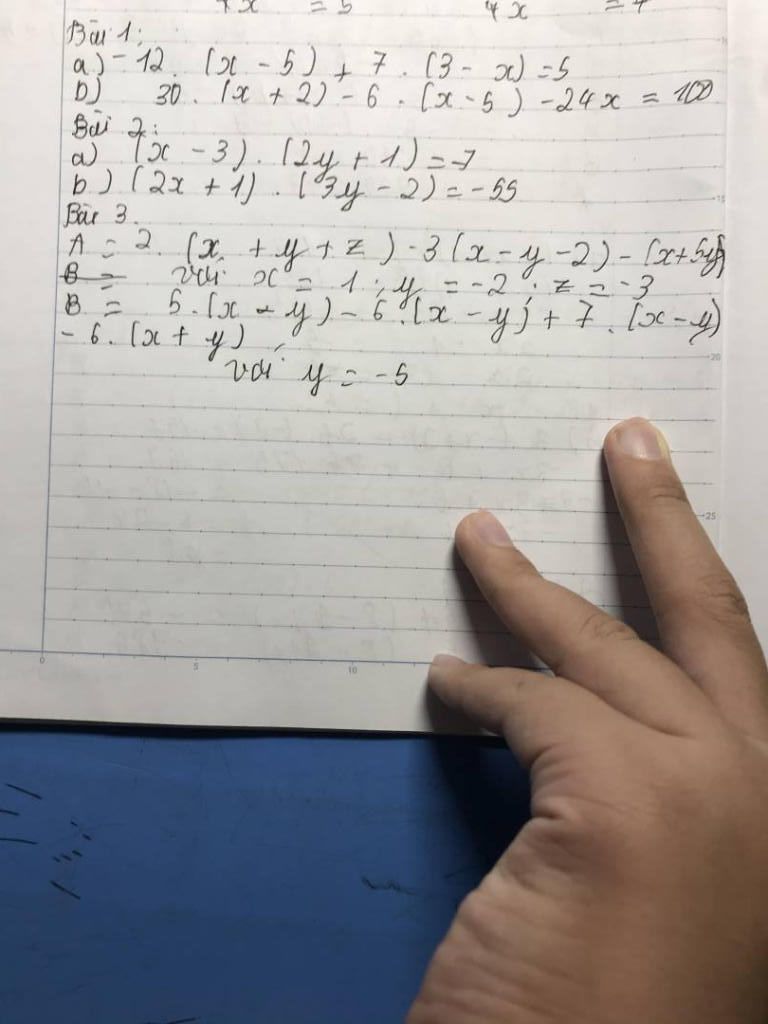 4x = 5 4x = 7
Bài 1:
a) -12. (x - 5) + 7. (3 - x) = 5
b) 30. (x + 2) - 6. (x - 5) - 24x = 100
Bài 2:
a) (x - 3). (2y + 1) = -7
b) (2x + 1). (3y - 2) = -55
Bài 3.
A = 2. (x + y + z) - 3(x - y - 2) - (x + 5y)
B = với x = 1; y = -2; z = -3
B = 5. (x - y) - 6. (x - y) + 7. (x - y)
- 6. (x + y)
với y = -5
15
20
25
0 5 10